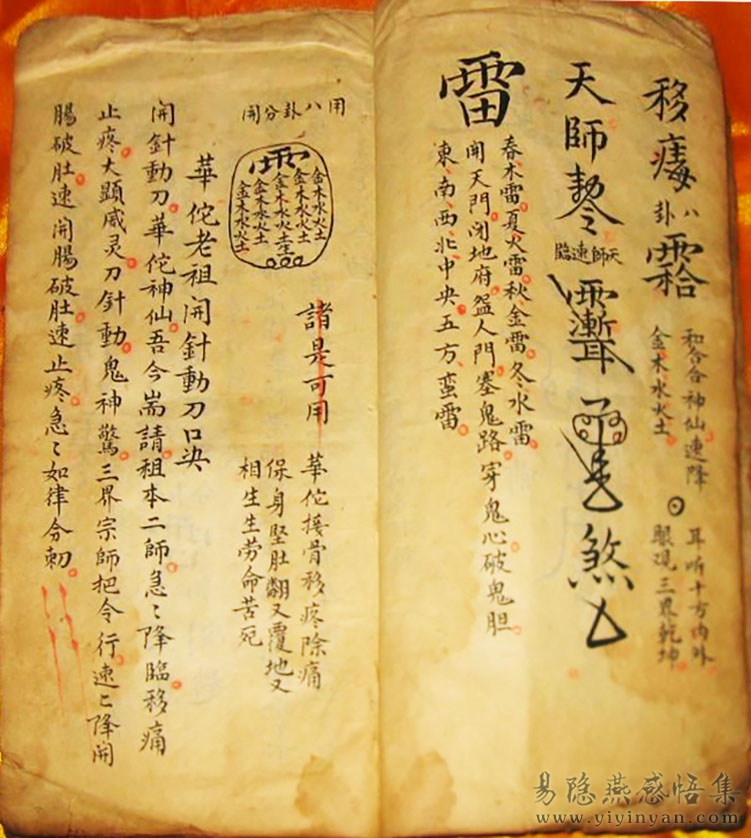 移痷
八卦
霠
和合合神仙速降
金木水火土
耳听十方内外
眼观三界乾坤
天師勅令
天師速臨
煞
雷
春木雷夏火雷秋金雷冬水雷
開天門閉地府盗人門塞鬼路穿鬼心破鬼胆
東南西北中央五方蛮雷
用八卦分開
金木水火土
金木水火土
金木水火土
金木水火土
金木水火土
諸是可用
華佗接骨移疼除痛
保身堅肚翻又覆地又
相生生劳命苦死
華佗老祖開針動刀口决
開針動刀華佗神仙吾今耑請祖本二師急〻降臨移痛
止疼大顕威灵刀針動鬼神驚三界宗師把令行速〻降開
腸破肚速開腸破肚速止疼急〻如律令勅
易隐燕感悟集
www.yiyinyan.com